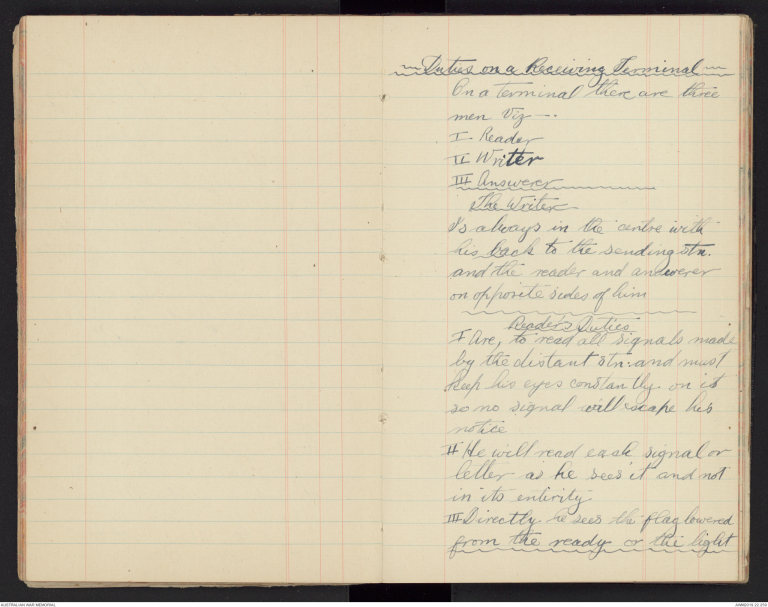 Duties on a Receiving Terminal
On a terminal there are three
men Viz —.
I Reader
II Writer
III Answerer
The Writer
Is always in the centre with
his back to the sending stn.
and the reader and answerer
on opposite sides of him
Reader's Duties
I Are, to read all signals made
by the distant stn: and must
keep his eyes constantly on it
so no signal will escape his
notice
II He will read each signal or
letter as he sees it and not
in its entirity
III Directly he sees the flag lowered
from the ready or the light
AUSTRALIAN WAR MEMORIAL